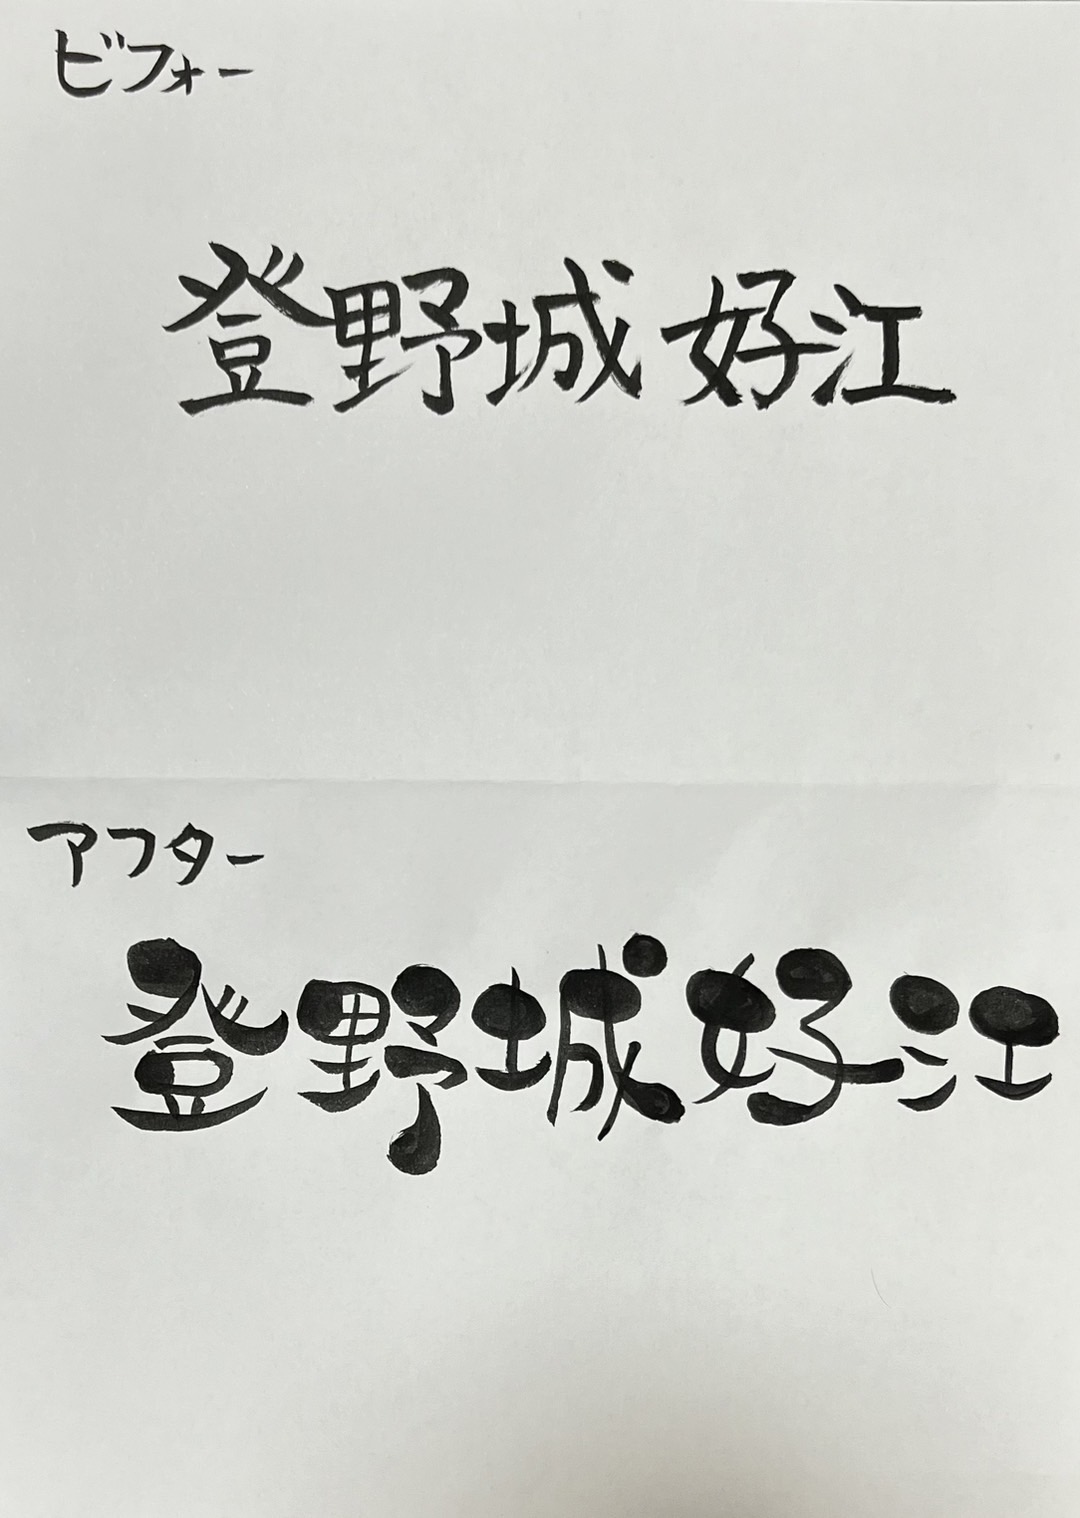 ビフォー
登野城 好江
アフター
登野城 好江